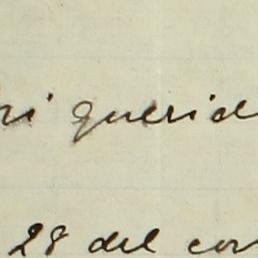 mi querid
28 del cor